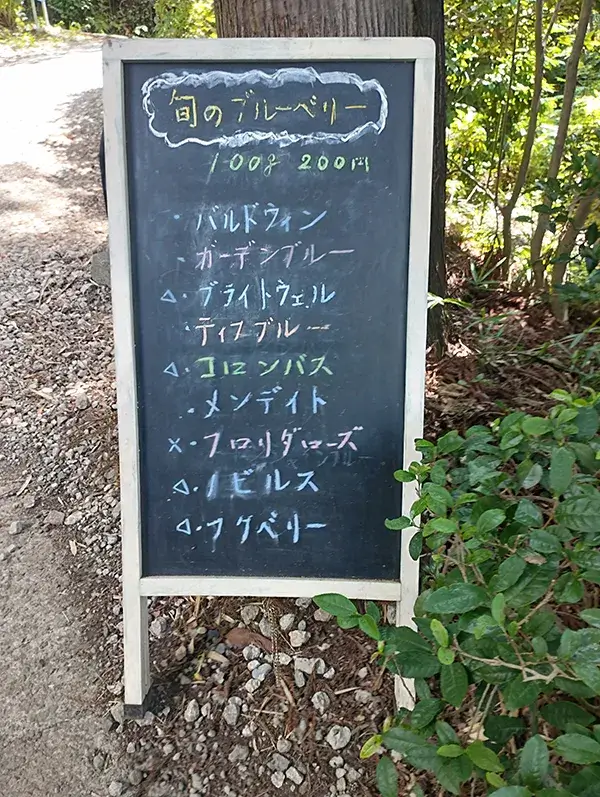 旬のブルーベリー
100g 200円
・バルドウィン
・ガーデンブルー
△・ブライトウェル
・ティフブルー
△・コロンバス
・メンデイト
×・フロリダローズ
△・ノビルス
△・フクベリー